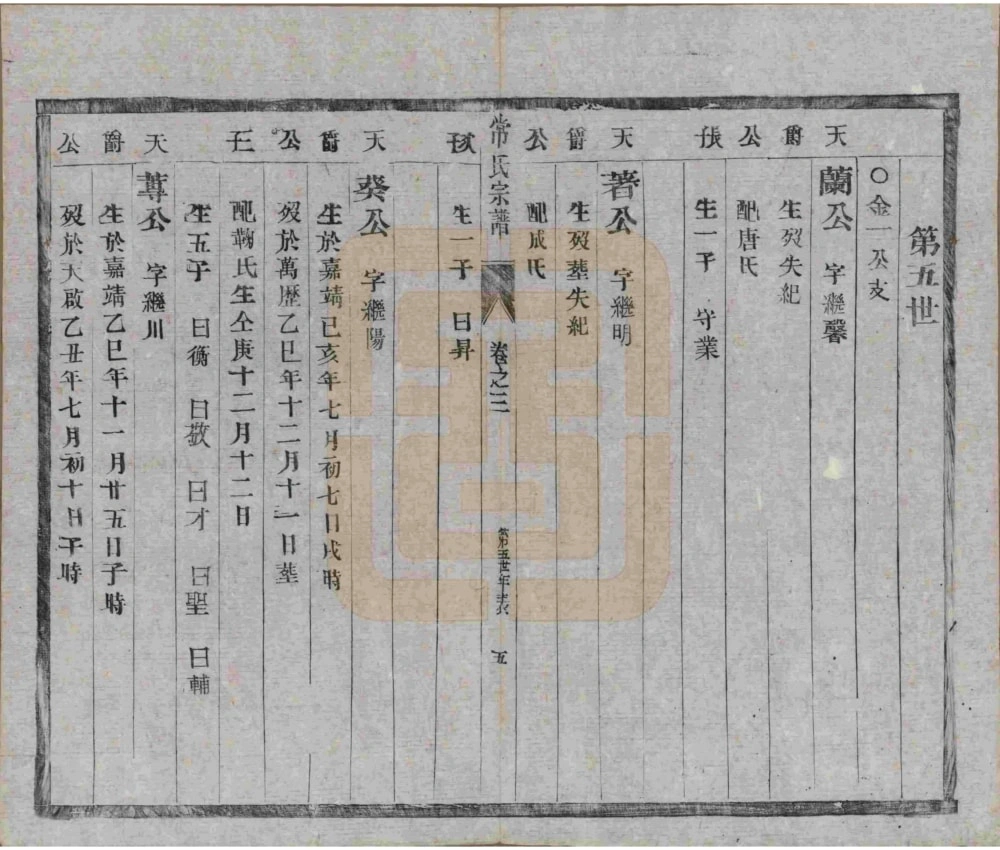 第五世
〇金一公支
天 蘭公 字繼馨
爵 生歿失紀
公 配唐氏
長 生一子 守業
天 著公 字繼明
爵 生歿塟失紀
公 配成氏
次 生一子 曰昇
常氏宗譜 卷之三 第五世年表 五
天 葵公 字繼陽
爵 生於嘉靖已亥年七月初七日戌時
公 歿於萬歷乙巳年十二月十一日塟
三 配鞠氏生仝庚十二月十二日
生五子 曰衡 曰敬 曰才 曰聖 曰輔
天 蓴公 字繼川
爵 生於嘉靖乙巳年十一月廿五日子時
公 歿於天啟乙丑年七月初十日午時